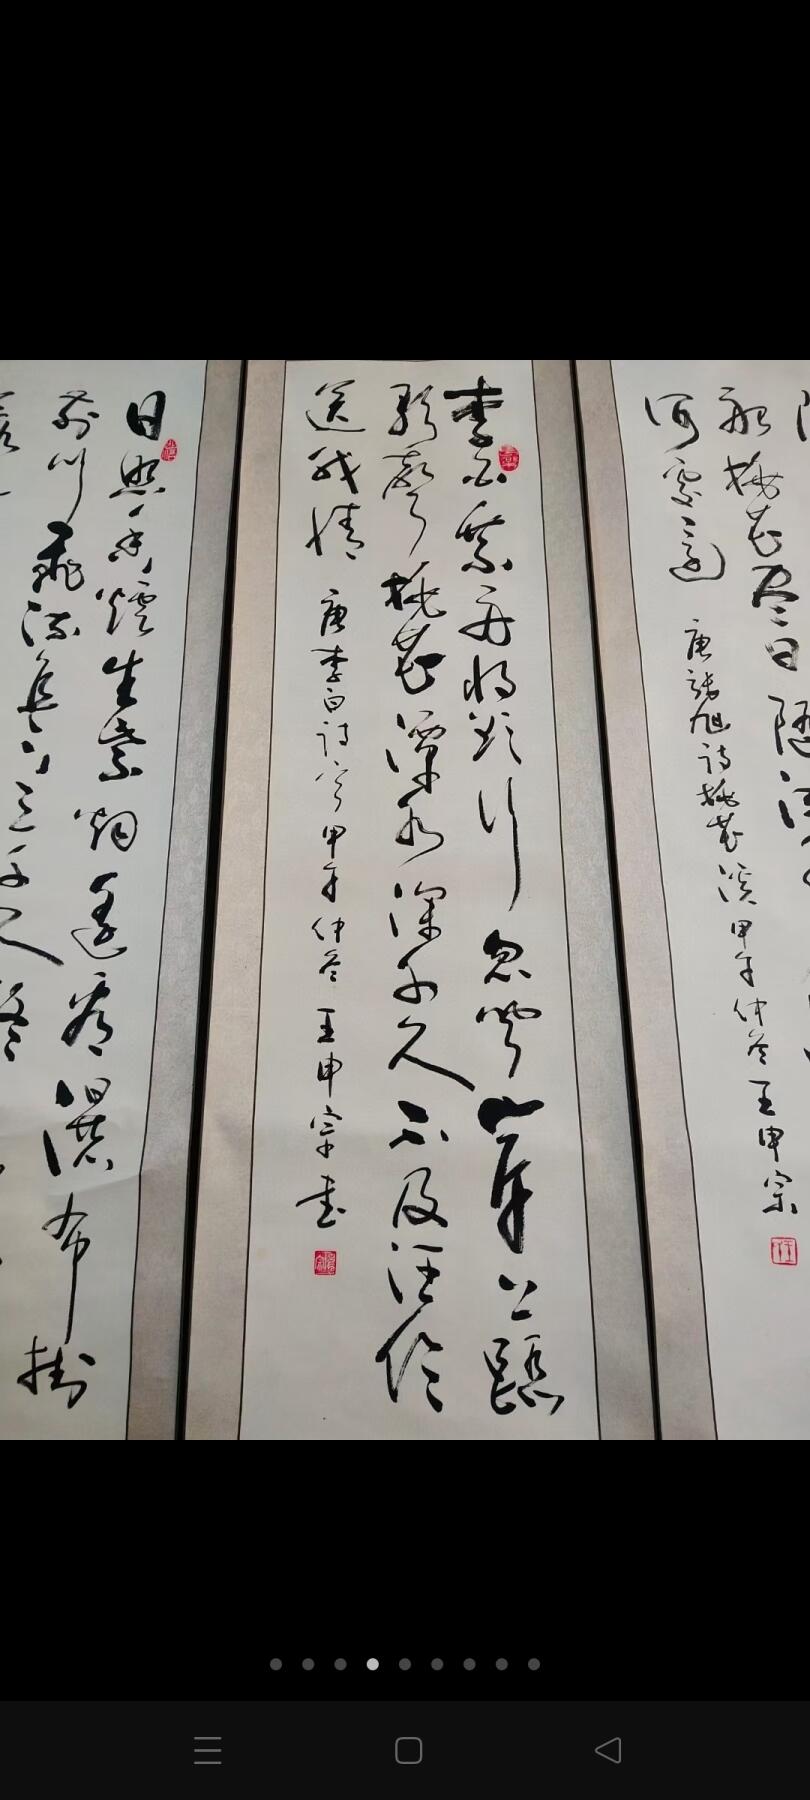 隨
船桃花尽日随流
何處邊
唐張旭詩桃花溪甲午仲冬王申宗
李白乘舟将欲行忽闻岸上踏
歌聲桃花潭水深千尺不及汪伦
送我情
唐李白詩一首甲午仲冬王申宗書
日照香炉生紫烟遥看瀑布掛
前川飛流直下三千尺疑